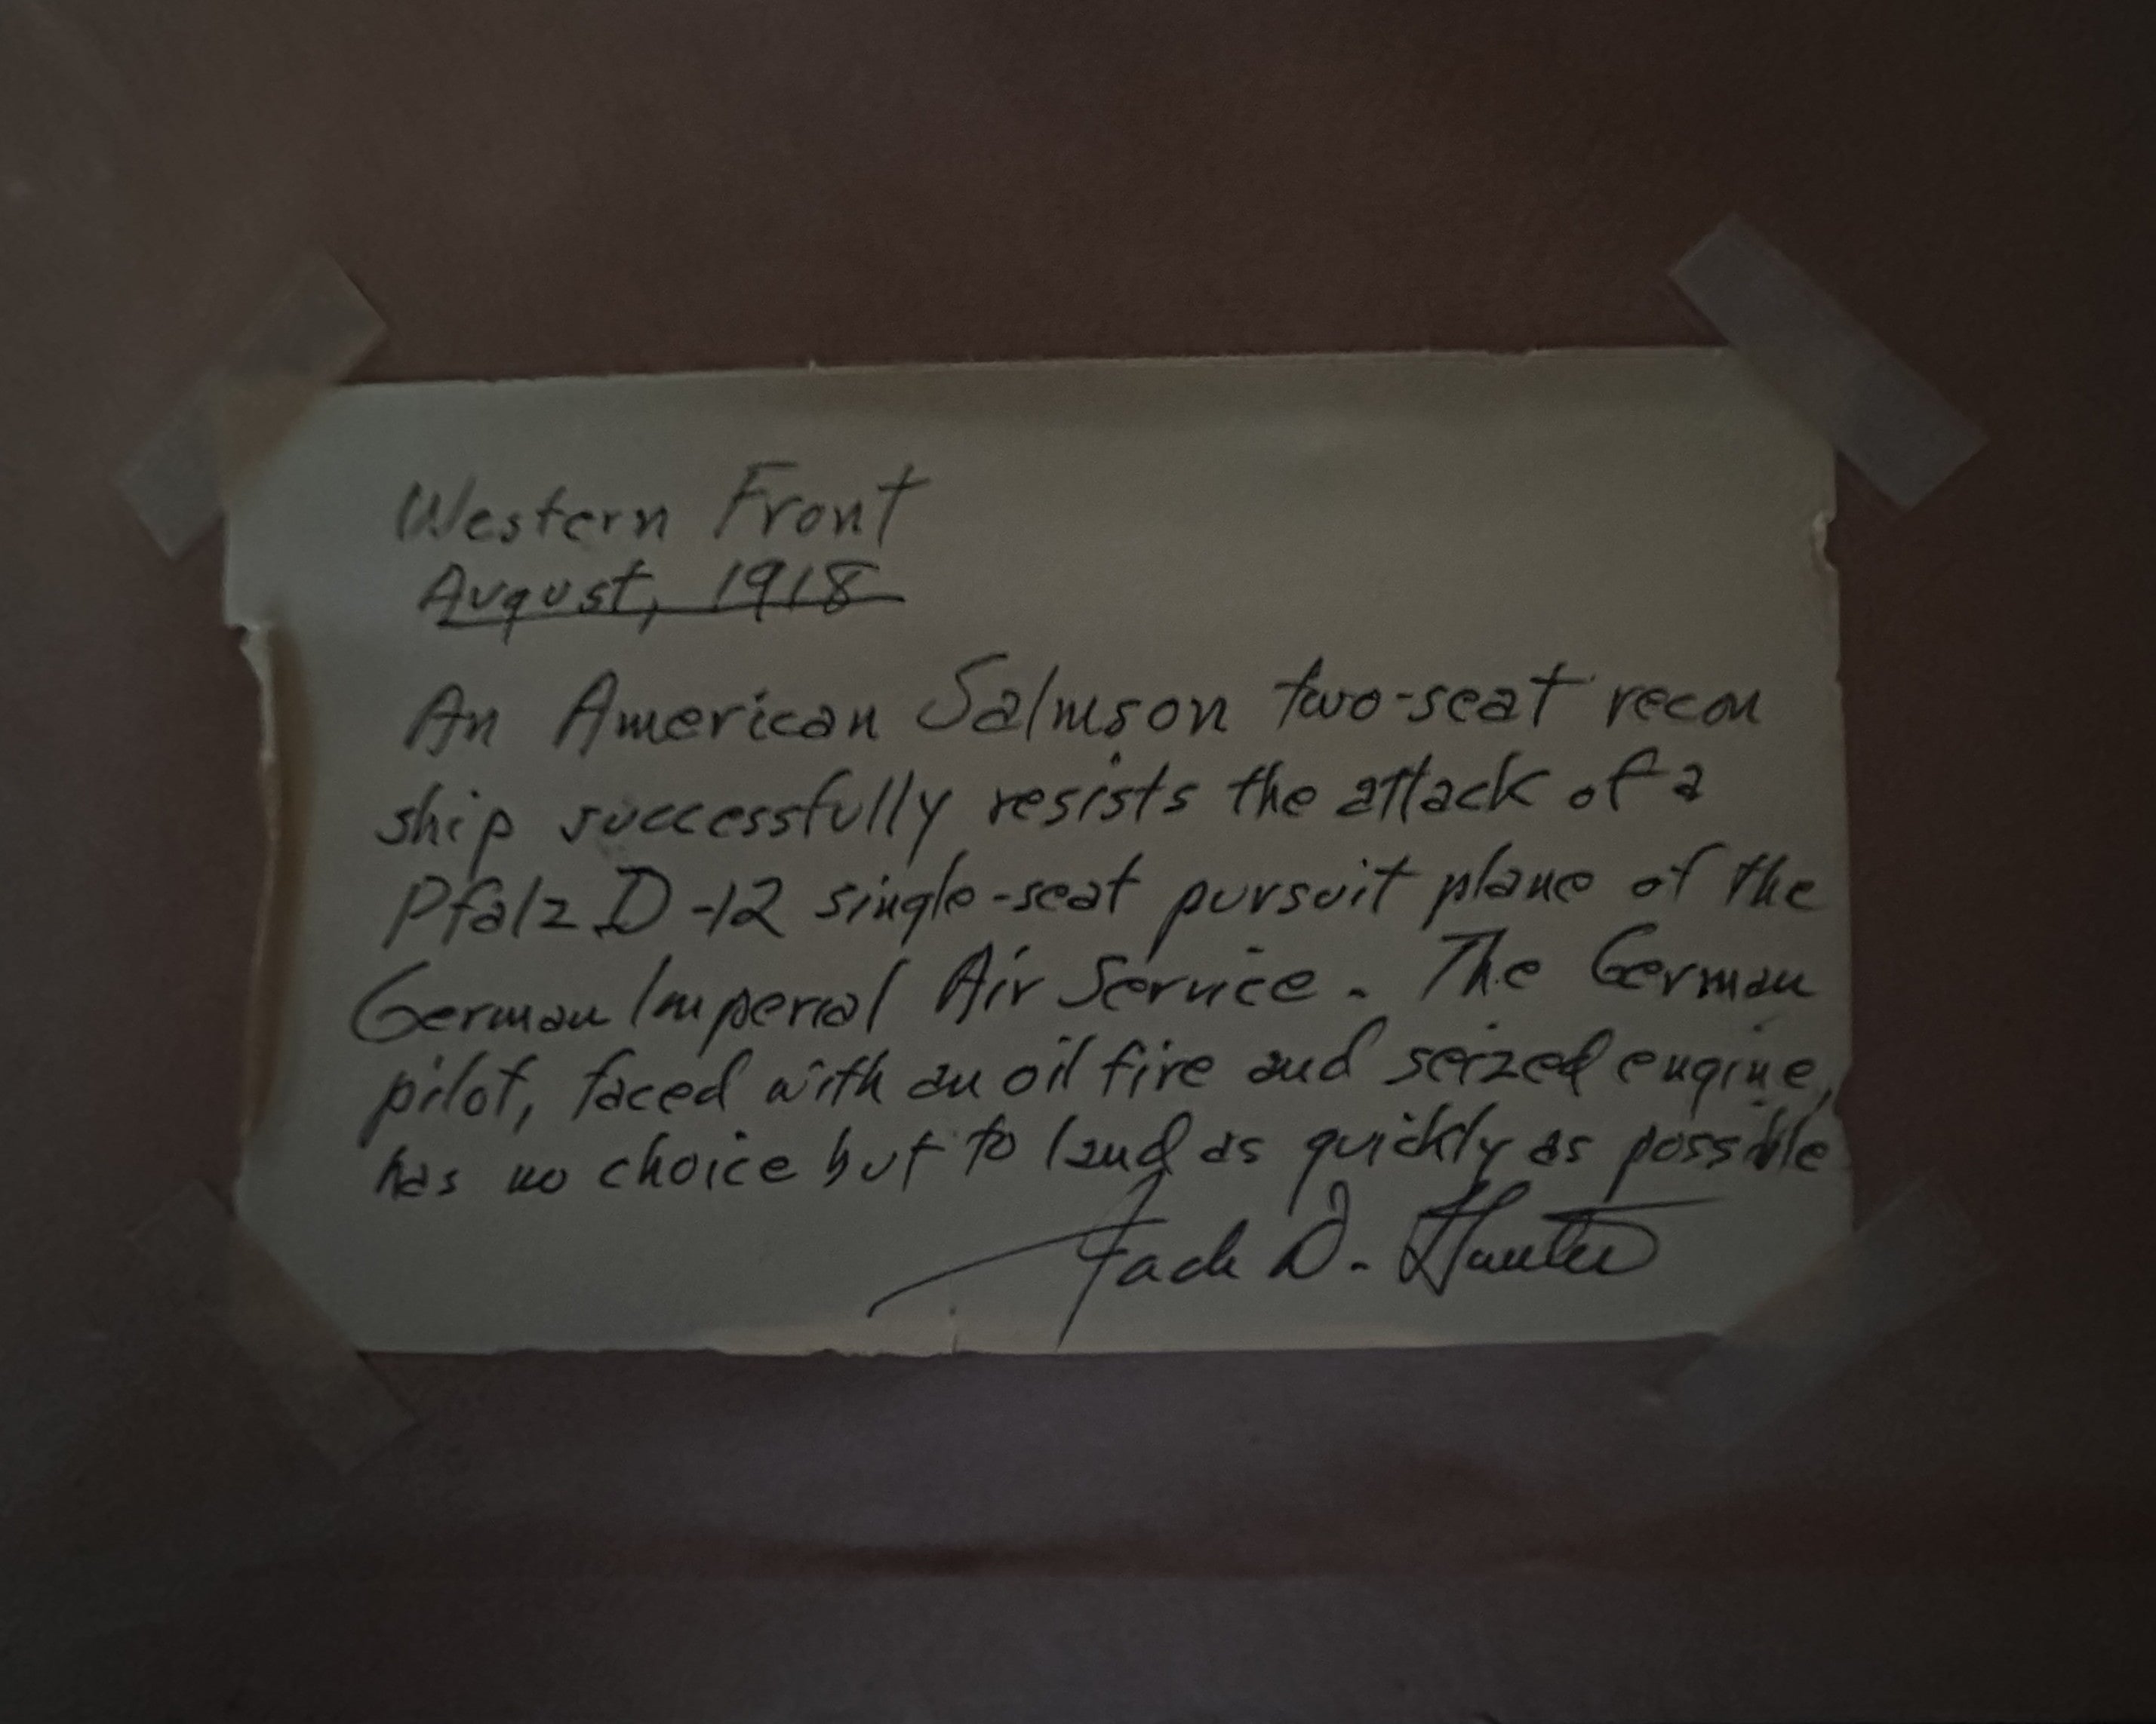 Western Front
August, 1918
An American Salmson two-seat recon
ship successfully resists the attack of a
Pfalz D-12 single-seat pursuit plane of the
German Imperial Air Service. The German
pilot, faced with an oil fire and seized engine,
has no choice but to land as quickly as possible
Jack D. Hunter